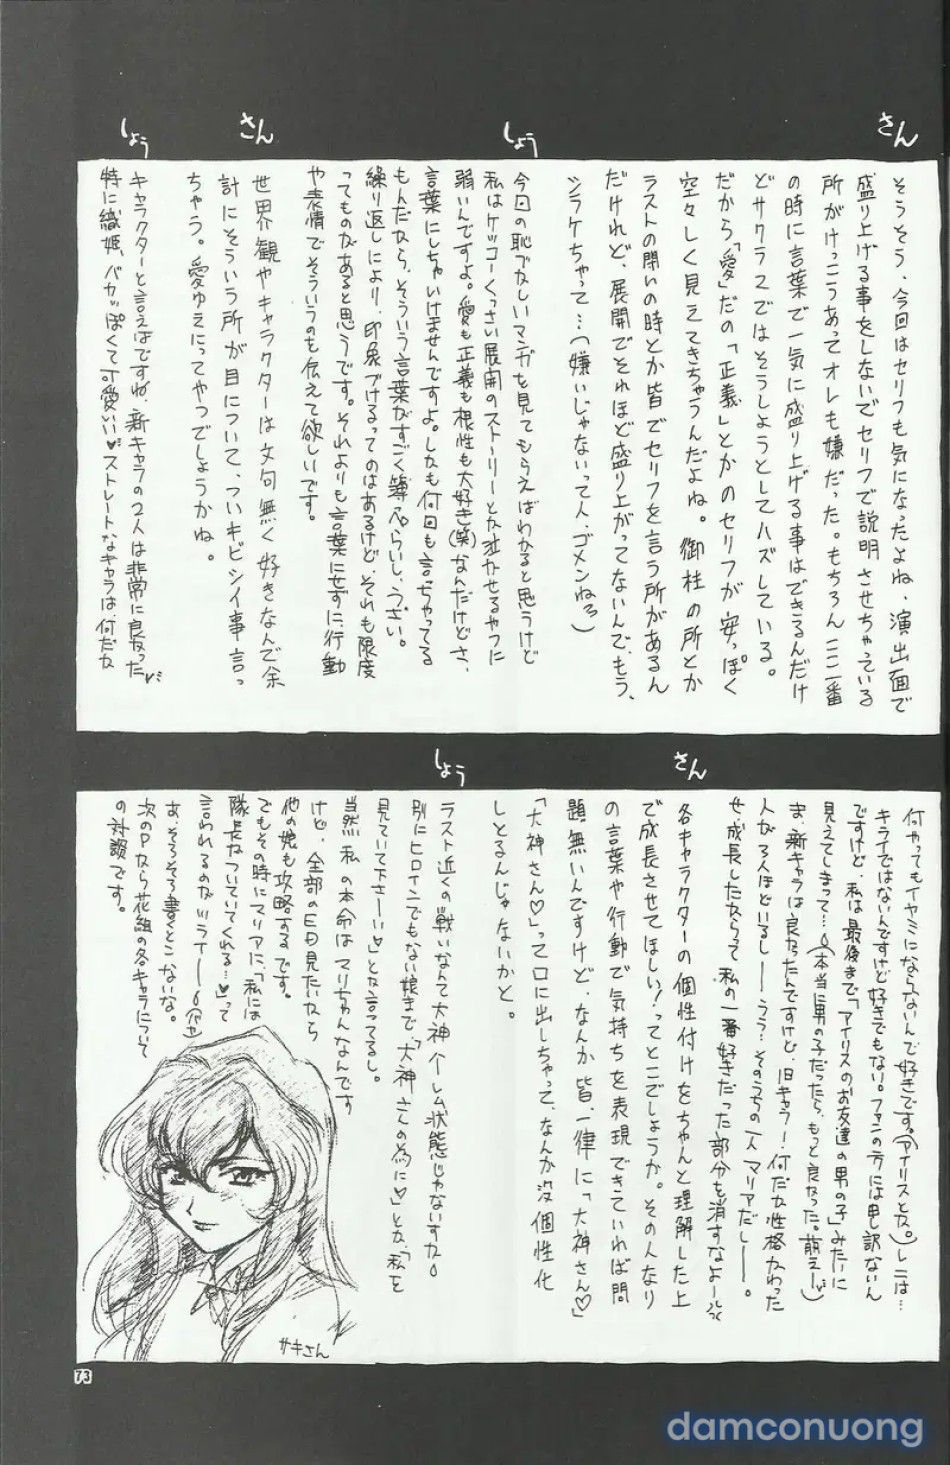 さん
そうそう、今回はセリフも気になったよね、演出面で
盛り上げる事をしないでセリフで説明させちゃっている
所がけっこうあってオレも嫌だった。もちろんここ一番
の時に言葉で一気に盛り上げる事はできるんだけ
どサクラスではそうしようとしてハズしている。
だから「愛」だの「正義」とかのセリフが安っぽく
空々しく見えてきちゃうんだよね。御柱の所とか
ラストの闘いの時とか皆でセリフを言う所があるん
だけれど、展開でそれほど盛り上がってないんで、もう、
シラケちゃって…(嫌いじゃないって人、ゴメンねぇ)
しょう
今回の恥づかしいマンガを見てもらえばわかると思うけど
私はケッコーくっさい展開のストーリーとか泣かせるやつに
弱いんですよ。愛も正義も根性も大好き(笑)なんだけどさ、
言葉にしちゃいけませんですよ。しかも何回も言っちゃってる
もんだから、そういう言葉がすごく薄っぺらいし、うざい。
繰り返しにより、印象づけるってのはあるけど、それも限度
ってものがあると思うです。それよりも言葉にせずに、行動
や表情でそういうのを伝えて欲しいです。
さん
世界観やキャラクターは文句無く好きなんで余
計にそういう所が目について、ついキビシイ事言っ
ちゃう。愛ゆえにってやつでしょうかね。
しょう
キャラクターと言えばですね、新キャラの2人は非常に良かった
特に織姫、バカっぽくて可愛いい♡ストレートなキャラは、何だか
何やってもイヤミにならないんで好きです。(アイリスとか。)レニは…
キライではないんですけど好きでもない。ファンの方には申し訳ないん
ですけど、私は最後まで「アイリスのお友達の男の子」みたーに
見えてしまって…(本当に男の子だったら、もっと良かった。萌えー)
ま、新キャラは良かったんですけど、旧キャラ!何だか性格かわった
人が3人ほどいるしーーううう…そのうちの一人マリアだしーー。
せ、成長したからって私の一番好きだった部分を消すなよーー
さん
各キャラクターの個性付けをちゃんと理解した上
で成長させてほしい!ってとこでしょうか。その人なり
の言葉や行動で気持ちを表現できていれば問
題無いんですけど、なんか皆、一律に「大神さん♡」
「大神さん♡」って口に出しちゃって、なんか没個性
しとるんじゃないかと。
しょう
ラスト近くの戦いなんて大神ハーレム状態じゃないすか。
別にヒロインでもない娘まで「大神さんの為に♡」とか「私を
見ていて下さーい♡」とか言ってるし。
当然、私の本命はマリちゃんなんです
けど、全部のED見たいから
他の娘も攻略するです。
でもその時にマリアに「私には
隊長がついていてくれる…♡」って
言われるのがツライーー
あ、そろそろ書くとこないな。
次のPから花組の各キャラについて
の対談です。
サキさん
73
damconuong